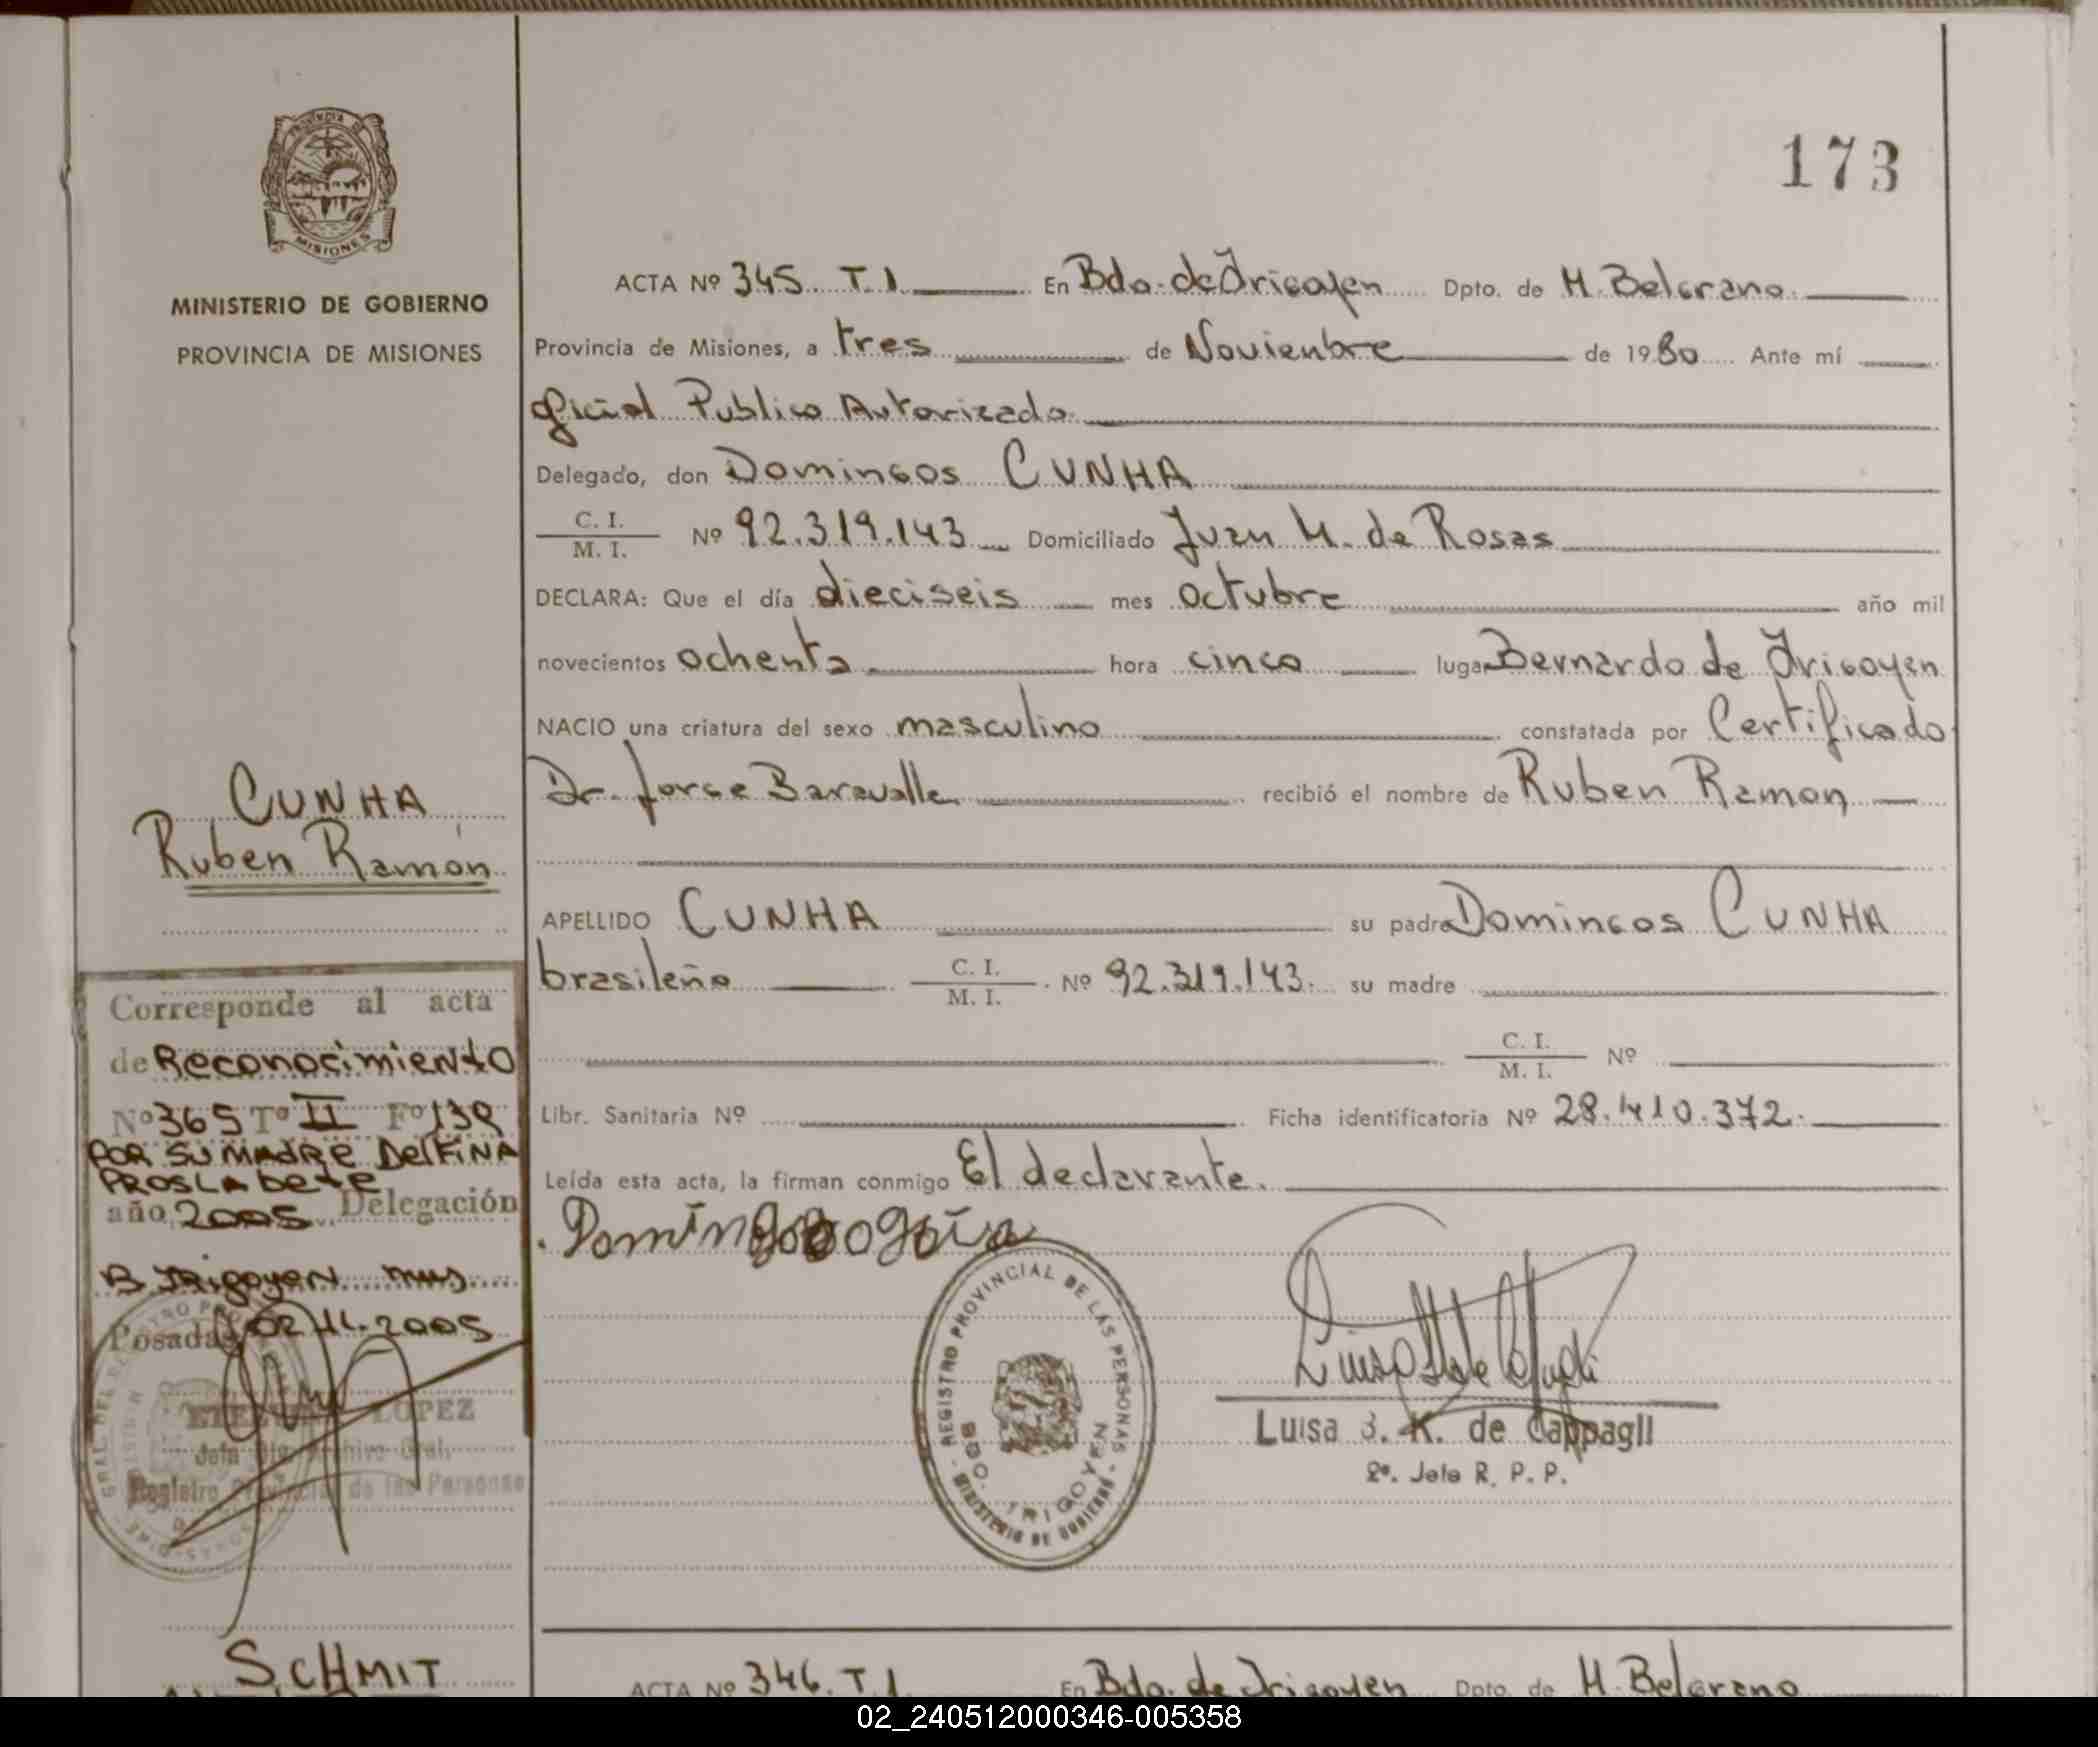 173
PROVINCIA DE
MISIONES
MINISTERIO DE GOBIERNO
PROVINCIA DE MISIONES
ACTA Nº 345 T. I En Bdo. de Irigoyen Dpto. de M. Belgrano
Provincia de Misiones, a tres de Novienbre de 1980 Ante mí
oficial Publico Autorizado
Delegado, don Domingos CUNHA
C. I. / M. I. Nº 92.319.143 Domiciliado Juan M. de Rosas
DECLARA: Que el día dieciseis mes octubre año mil
novecientos ochenta hora cinco lugar Bernardo de Irigoyen
NACIO una criatura del sexo masculino constatada por Certificado
Dr. Jorge Baravalle recibió el nombre de Ruben Ramon
APELLIDO CUNHA su padre Domingos CUNHA
brasileño C. I. / M. I. Nº 92.319.143. su madre
C. I. / M. I. Nº
Libr. Sanitaria Nº Ficha identificatoria Nº 28.410.372.
Leída esta acta, la firman conmigo El declarante.
CUNHA
Ruben Ramon
Corresponde al acta
de Reconocimiento
Nº 365 Tº II Fº 139
POR SU MADRE DELFINA
PROSLABETE
año 2005 Delegación
B Irigoyen mns
Posadas 02.11.2005
LOPEZ
Jefa Archivo Gral.
Registro Provincial de las Personas
REGISTRO PROVINCIAL DE LAS PERSONAS
BDO. IRIGOYEN
MINISTERIO DE GOBIERNO
Luisa S. K. de Cappagli
2º. Jefe R. P. P.
SCHMIT
ACTA Nº 346. T. I En Bdo. de Irigoyen Dpto. de M. Belgrano
02_240512000346-005358